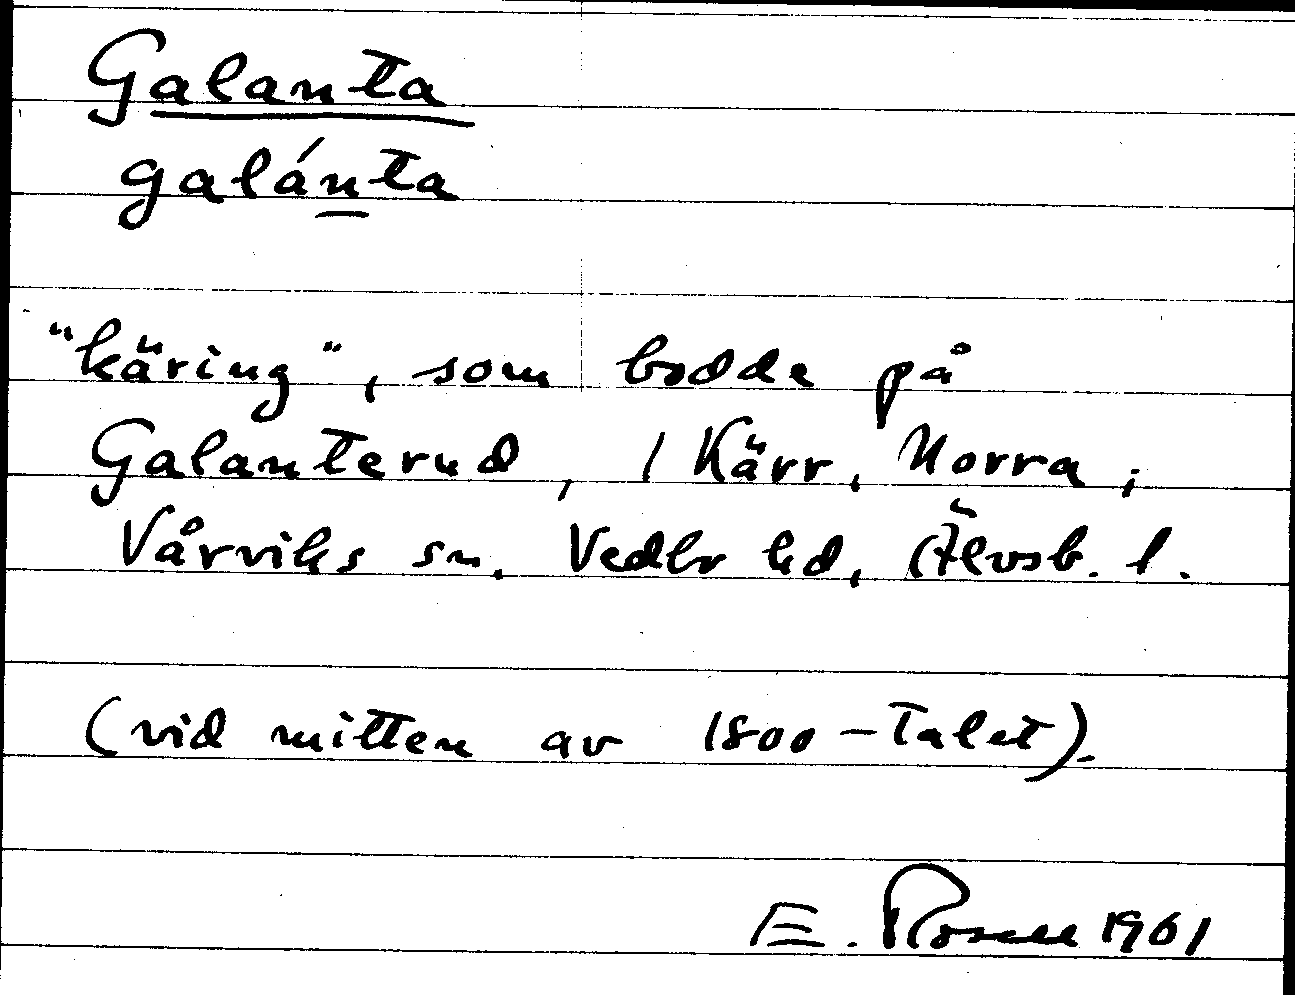 Galanta
galánta
"käring", som bodde på
Galanterud, 1 Kärr, Norra,
Vårviks sn. Vedbo hd, Älvsb. l.
(vid mitten av 1800-talet).
E. Rosell 1961